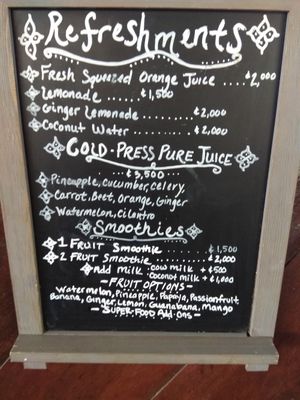 Refreshments
Fresh Squeezed Orange Juice .... ¢2,000
Lemonade ...... ¢1,500
Ginger Lemonade ........ ¢2,000
Coconut Water ....... ¢2,000
COLD-PRESS PURE JUICE
... ¢3,500 .......
Pineapple, Cucumber, Celery,
Carrot, Beet, Orange, Ginger
Watermelon, Cilantro
Smoothies
1 FRUIT Smoothie ......... ¢1,500
2 FRUIT Smoothie ......... ¢2,000
Add Milk . cow milk + ¢500
. Coconut milk + ¢1,000
- FRUIT OPTIONS -
Watermelon, Pineapple, Papaya, Passionfruit
Banana, Ginger, Lemon, Guanabana, Mango
- SUPER-FOOD Add-Ons -